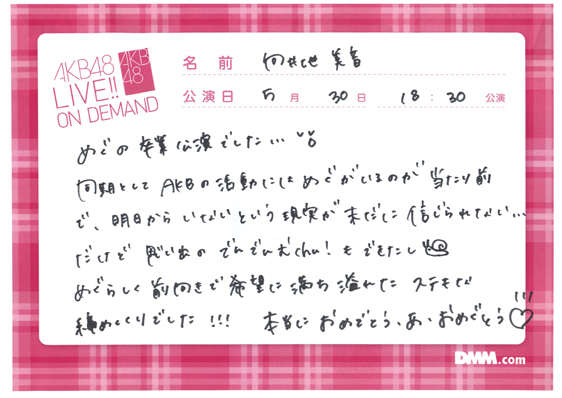 AKB48
LIVE!!
ON DEMAND
AKB
48
名 前 向井地 美音
公演日 5 月 30 日 18 : 30 公演
めぐの卒業公演でした…
同期として AKBの活動にはめぐがいるのが当たり前
で、明日からいないという現実が未だに信じられない…
だけど 思い出の でんでんむchu! もできたし
めぐらしく前向きで希望に満ち溢れた ステキな
締めくくりでした!!! 本当に おめでとう、あ、おめぐとう♡!!!
DMM.com